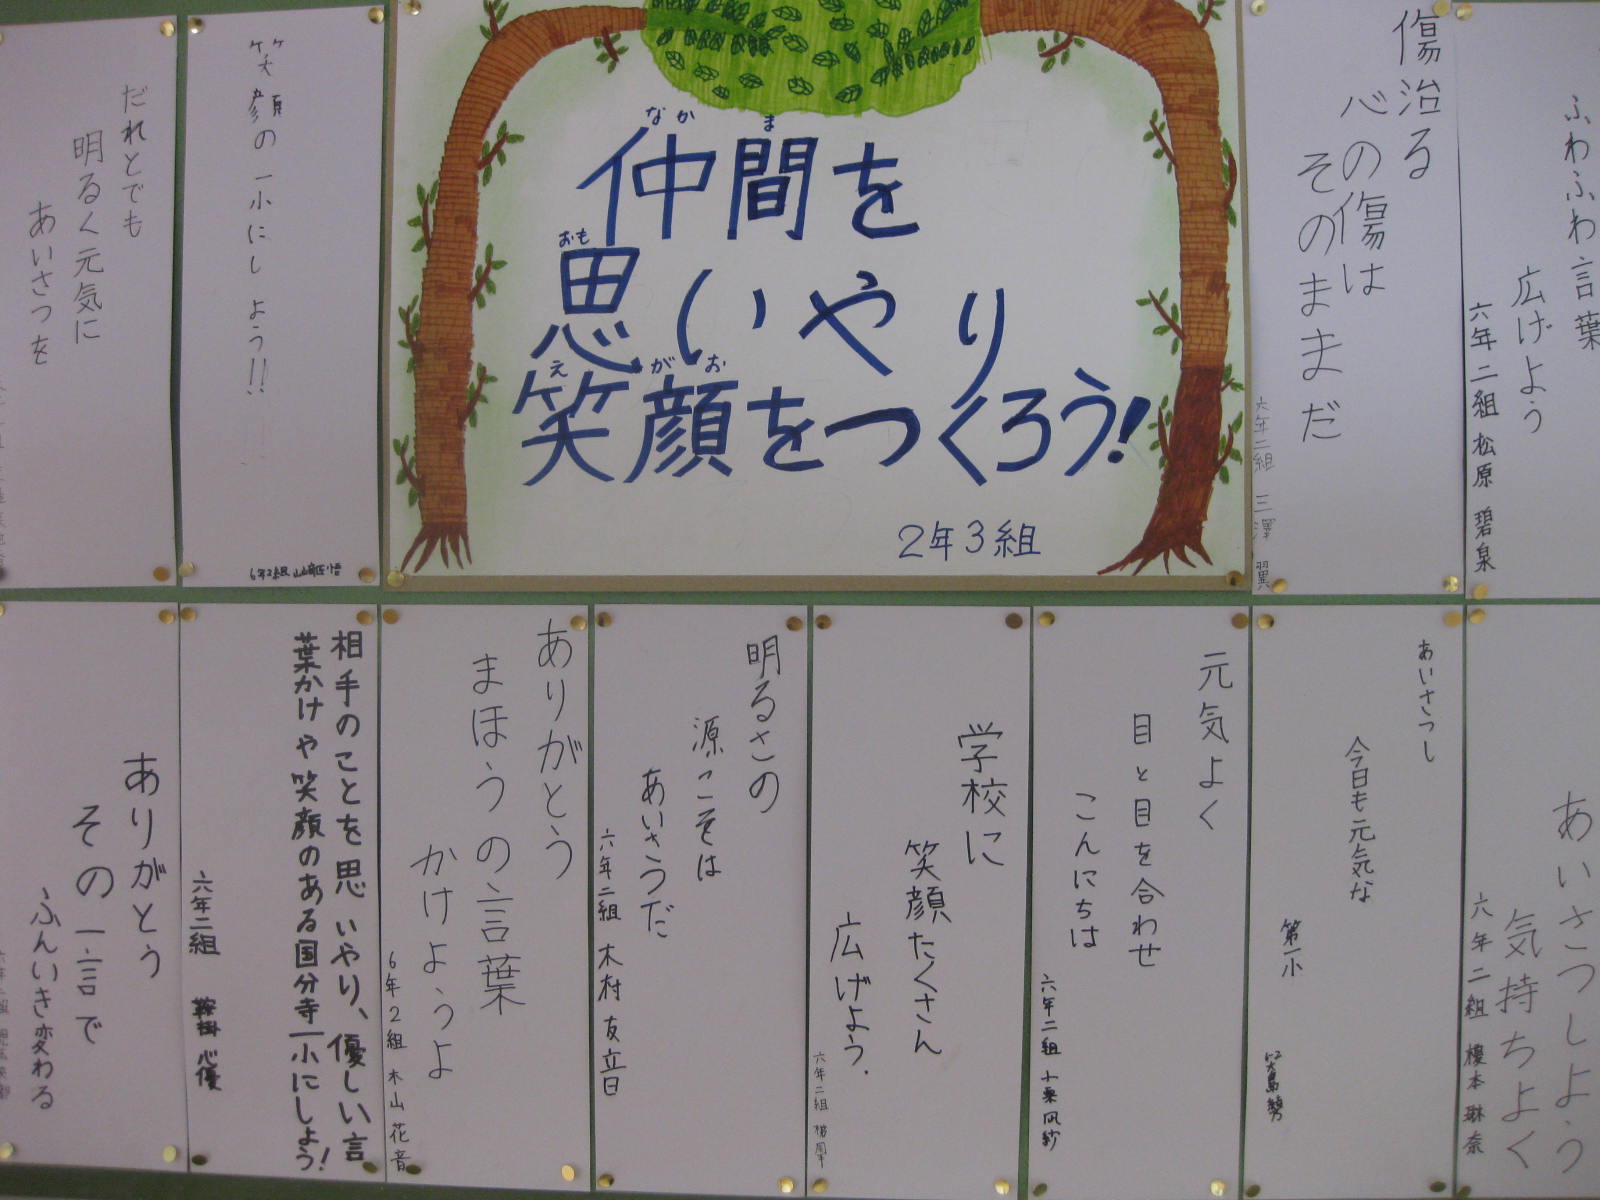 仲間を
なか
ま
思いやり
おも
笑顔をつくろう!
え
がお
2年3組
ふわふわ言葉
広げよう
六年二組 松原 碧泉
傷治る
心の傷は
そのままだ
六年二組 三澤 翼
笑顔の一小にしよう!!
6年2組
だれとでも
明るく元気に
あいさつを
あいさつしよう
気持ちよく
六年二組 榎本 琳奈
あいさつし
今日も元気な
第一小
元気よく
目と目を合わせ
こんにちは
六年二組 小栗 凪紗
学校に
笑顔たくさん
広げよう.
六年二組
明るさの
源こそは
あいさつだ
六年二組 木村 友音
ありがとう
まほうの言葉
かけようよ
6年2組 木山 花音
相手のことを思いやり、優しい言
葉かけや笑顔のある国分寺一小にしよう!
六年二組 鞍掛 心優
ありがとう
その一言で
ふんいき変わる